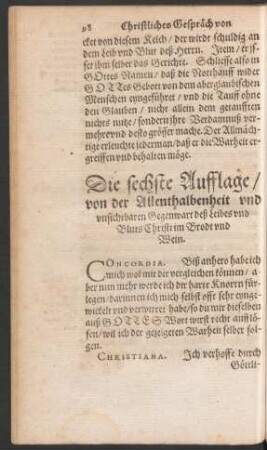 98 Christliches Gespräch von
cket von diesem Kelch / der wirdt schuldig an
dem Leib vnd Blut deß Herrn. Item / er isset
ihm selber das Gerichte. Schliesse also in
GOttes Namen / daß die Nothtauff wider
GOTTES Gebott von dem aberglaubischen
Menschen eyngeführet / vnd die Tauff ohne
den Glauben / nicht allein dem getaufften
nichts nutze / sondern ihre Verdamnuß
vermehre vnd desto grösser mache. Der Allmächtige
erleuchte jederman / daß er die Warheit ergreiffen
vnd behalten möge.
Die sechste Aufflage /
von der Allenthalbenheit vnd
vnsichtbaren Gegenwart deß Leibes vnd
Bluts Christi im Brodt vnd
Wein.
CONCORDIA. Biß anhero habe ich
mich wol mit dir vergleichen können / aber
nun mehr werde ich dir harte Knorrn fürlegen /
darinnen ich mich selbst offt sehr eyngewickelt
vnd verwirret habe / so du mir dieselben
auß GOTTES Wort wirst recht aufflösen /
wil ich der gezeigeten Warheit selber folgen.
CHRISTIANA. Ich verhoffe durch
Göttli-